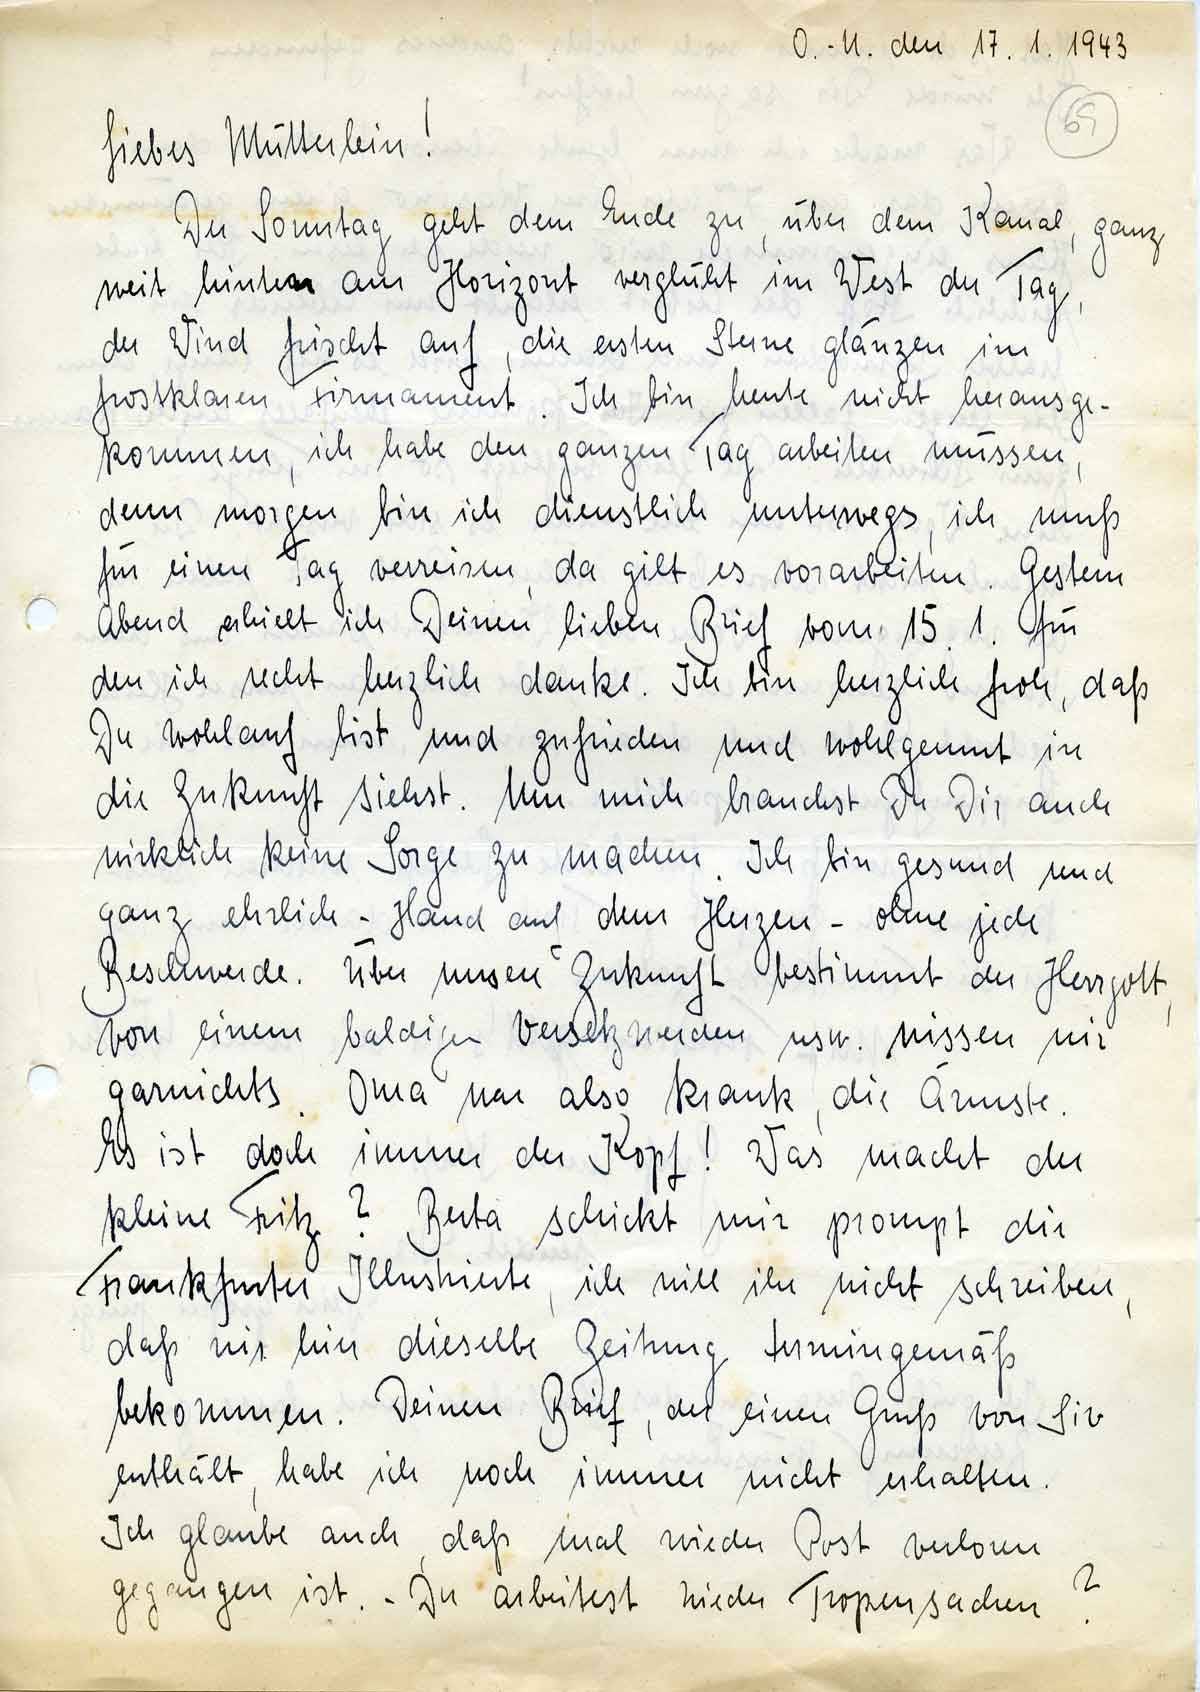 O.-U. den 17. 1. 1943
69
Liebes Mütterlein!
Der Sonntag geht dem Ende zu, über dem Kanal, ganz
weit hinten am Horizont verglüht im West der Tag,
der Wind frischt auf, die ersten Sterne glänzen im
frostklaren Firmament. Ich bin heute nicht herausge-
kommen, ich habe den ganzen Tag arbeiten müssen,
denn morgen bin ich dienstlich unterwegs, ich muß
für einen Tag verreisen, da gilt es vorarbeiten. Gestern
Abend erhielt ich Deinen lieben Brief vom 15. 1. für
den ich recht herzlich danke. Ich bin herzlich froh, daß
Du wohlauf bist und zufrieden und wohlgemut in
die Zukunft siehst. Um mich brauchst Du Dir auch
wirklich keine Sorge zu machen. Ich bin gesund und
ganz ehrlich - Hand auf dem Herzen - ohne jede
Beschwerde. Über unsere Zukunft bestimmt der Herrgott,
von einem baldigen Versetzwerden usw. wissen wir
garnichts. Oma war also krank, die Ärmste.
Es ist doch immer der Kopf! Was macht der
kleine Fritz? Berta schickt mir prompt die
Frankfurter Illustrierte, ich will ihr nicht schreiben,
daß wir hier dieselbe Zeitung termingemäß
bekommen. Deinen Brief, der einen Gruß von Siv
enthält, habe ich noch immer nicht erhalten.
Ich glaube auch, daß mal wieder Post verloren
gegangen ist. - Du arbeitest wieder Tropensachen?